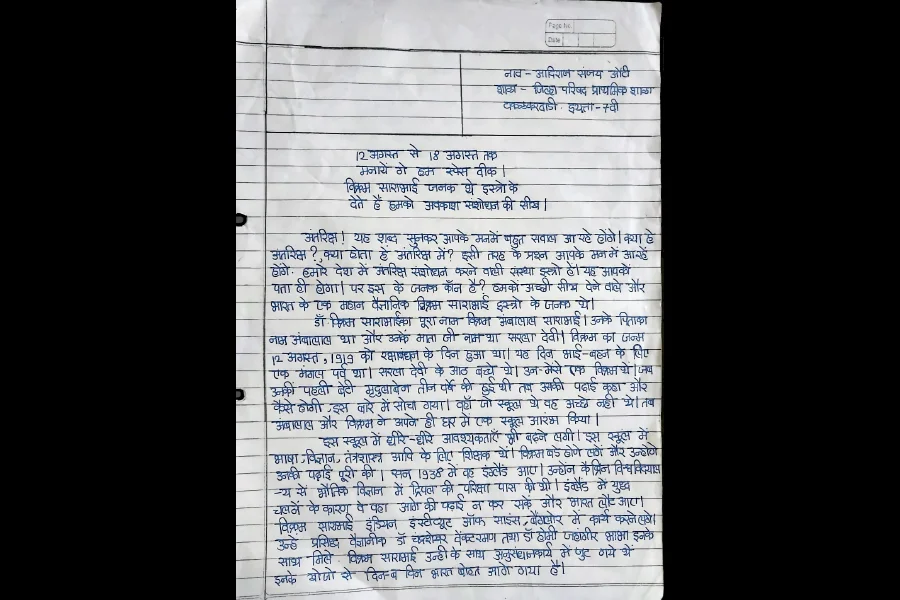 Page No.
Date
नाव - आदिराज संजय ओटी
शाळा - जिल्हा परिषद प्राथमिक शाळा
इयत्ता - 7वी
12 अगस्त से 18 अगस्त तक
मनायें गे हम स्पेस वीक।
विक्रम साराभाई जनक थे इस्त्रो के
देते हैं हमको अवकाश संशोधन की सीख।
अंतरिक्ष! यह शब्द सुनकर आपके मनमें बहुत सवाल आ रहे होंगे। क्या है
अंतरिक्ष?, क्या होता हें अंतरिक्ष में? इसी तरह के प्रश्न आपके मन में आ रहें
होंगे. हमारे देश में अंतरिक्ष संशोधन करने वाली संस्था इस्त्रो है। यह आपको
पता ही होगा। पर इस के जनक कौन है? हमको अच्छी सीख देने वाले और
भारत के एक महान वैज्ञानिक विक्रम साराभाई इस्त्रो के जनक थे।
डॉ विक्रम साराभाईका पूरा नाम विक्रम अंबालाल साराभाई। उनके पिताका
नाम अंबालाल था और उनके माता जी नाम था सरला देवी। विक्रम का जन्म
12 अगस्त, 1919 को रक्षाबंधन के दिन हुआ था। यह दिन भाई-बहन के लिए
एक मंगल पर्व था। सरला देवी के आठ बच्चे थे। उन-मेसे एक विक्रम थे। जब
उनकी पहली बेटी मृदुलाबेन तीन वर्ष की हुई थी तब उसकी पढाई कहा और
कैसे होगी. इस बारे में सोचा गया। वहाँ जो स्कूल थे वह अच्छे नही थे। तब
अंबालाल और विक्रम ने अपने ही घर में एक स्कूल आरंभ किया।
इस स्कूल में धीरे-धीरे आवश्यकताएँ भी बढने लगी। इस स्कूल में
भाषा, विज्ञान, तंत्रशास्त्र आदि के लिए शिक्षक थे। विक्रम बडे होने लगे और उन्होंने
उनकी पढाई पूरी की। सन 1938 में वह इंग्लैंड आए। उन्होंने केंब्रिज विश्वविद्याल
-य से भौतिक विज्ञान में ट्रिपल की परिक्षा पास की थी। इंग्लैंड में युध्द
चलने के कारण वे वहा आगे की पढाई न कर सकें और भारत लौट आए।
विक्रम साराभाई इंडियन इंस्टीट्यूट ऑफ साइंस, बेंगलोर में कार्य करने लगे।
उन्हे प्रसिद्ध वैज्ञानीक डॉ चंद्रशेखर वेंकटरमण तथा डॉ होमी जहांगीर भाभा इनके
साथ मिले. विक्रम साराभाई उन्ही के साथ अनुसंधानकार्य में जुट गये थें
इनके खोजो से दिन-ब दिन भारत बोहत आगे गया है।